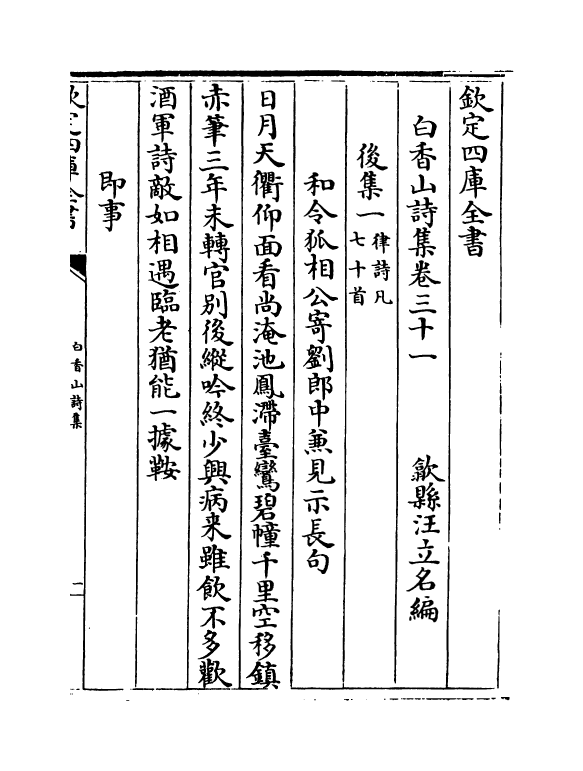 欽定四庫全書
白香山詩集卷三十一　　歙縣汪立名編
後集一律詩凡七十首
和令狐相公寄劉郎中兼見示長句
日月天衢仰面看尚淹池鳳滯臺鸞碧幢千里空移鎮
赤筆三年未轉官别後縱吟終少興病来雖飲不多歡
酒軍詩敵如相遇臨老猶能一據鞍
即事
欽定四庫全書
白香山詩集
二